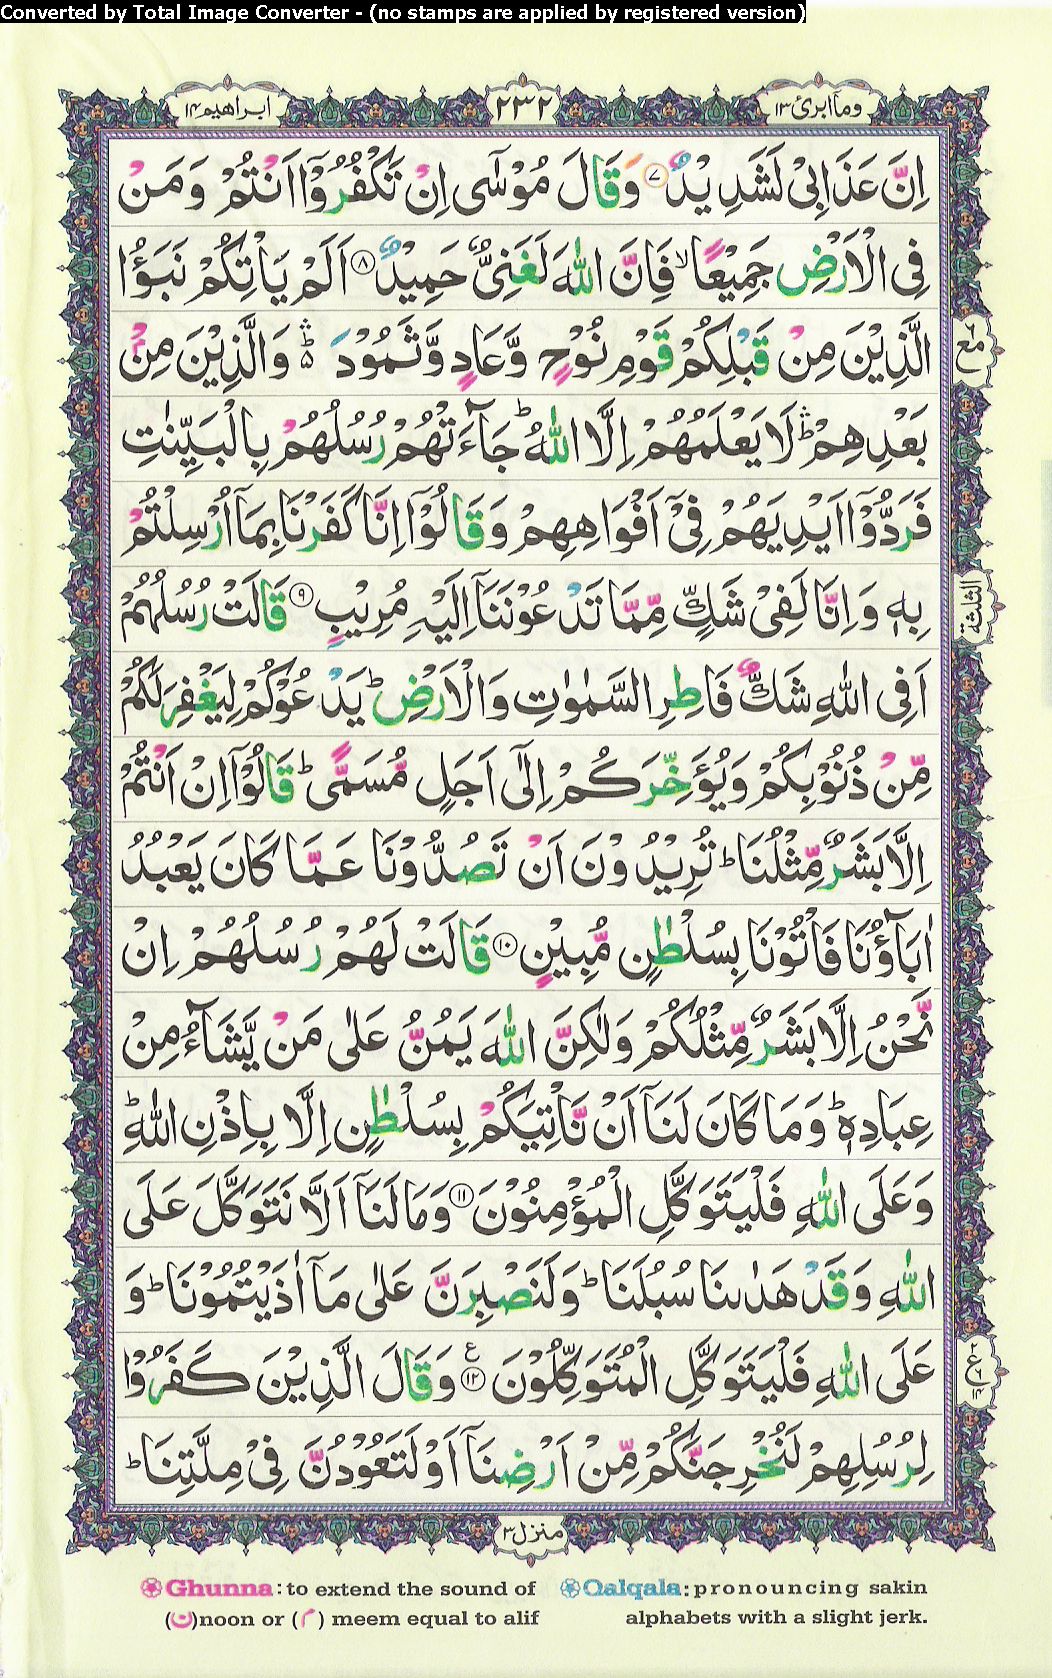 Converted by Total Image Converter - (no stamps are applied by registered version)
وما ابرئ ١٣
٢٣٢
ابراهيم ١٤
اِنَّ عَذَابِیْ لَشَدِیْدٌ ﴿٧﴾ وَقَالَ مُوْسٰۤی اِنْ تَكْفُرُوْۤا اَنْتُمْ وَمَنْ
فِی الْاَرْضِ جَمِیْعًا ۙ فَاِنَّ اللّٰهَ لَغَنِیٌّ حَمِیْدٌ ﴿٨﴾ اَلَمْ یَاْتِكُمْ نَبَؤُا
الَّذِیْنَ مِنْ قَبْلِكُمْ قَوْمِ نُوْحٍ وَّعَادٍ وَّثَمُوْدَ ۛؕ وَالَّذِیْنَ مِنْۢ
بَعْدِهِمْ ۛؕ لَا یَعْلَمُهُمْ اِلَّا اللّٰهُ ؕ جَآءَتْهُمْ رُسُلُهُمْ بِالْبَیِّنٰتِ
فَرَدُّوْۤا اَیْدِیَهُمْ فِیْۤ اَفْوَاهِهِمْ وَقَالُوْۤا اِنَّا كَفَرْنَا بِمَاۤ اُرْسِلْتُمْ
بِهٖ وَاِنَّا لَفِیْ شَكٍّ مِّمَّا تَدْعُوْنَنَاۤ اِلَیْهِ مُرِیْبٍ ﴿٩﴾ قَالَتْ رُسُلُهُمْ
اَفِی اللّٰهِ شَكٌّ فَاطِرِ السَّمٰوٰتِ وَالْاَرْضِ ؕ یَدْعُوْكُمْ لِیَغْفِرَ لَكُمْ
مِّنْ ذُنُوْبِكُمْ وَیُؤَخِّرَكُمْ اِلٰۤی اَجَلٍ مُّسَمًّی ؕ قَالُوْۤا اِنْ اَنْتُمْ
اِلَّا بَشَرٌ مِّثْلُنَا ؕ تُرِیْدُوْنَ اَنْ تَصُدُّوْنَا عَمَّا كَانَ یَعْبُدُ
اٰبَآؤُنَا فَاْتُوْنَا بِسُلْطٰنٍ مُّبِیْنٍ ﴿١٠﴾ قَالَتْ لَهُمْ رُسُلُهُمْ اِنْ
نَّحْنُ اِلَّا بَشَرٌ مِّثْلُكُمْ وَلٰكِنَّ اللّٰهَ یَمُنُّ عَلٰی مَنْ یَّشَآءُ مِنْ
عِبَادِهٖ ؕ وَمَا كَانَ لَنَاۤ اَنْ نَّاْتِیَكُمْ بِسُلْطٰنٍ اِلَّا بِاِذْنِ اللّٰهِ ؕ
وَعَلَی اللّٰهِ فَلْیَتَوَكَّلِ الْمُؤْمِنُوْنَ ﴿١١﴾ وَمَا لَنَاۤ اَلَّا نَتَوَكَّلَ عَلَی
اللّٰهِ وَقَدْ هَدٰىنَا سُبُلَنَا ؕ وَلَنَصْبِرَنَّ عَلٰی مَاۤ اٰذَیْتُمُوْنَا ؕ وَ
عَلَی اللّٰهِ فَلْیَتَوَكَّلِ الْمُتَوَكِّلُوْنَ ﴿١٢﴾ ع وَقَالَ الَّذِیْنَ كَفَرُوْا
لِرُسُلِهِمْ لَنُخْرِجَنَّكُمْ مِّنْ اَرْضِنَاۤ اَوْ لَتَعُوْدُنَّ فِیْ مِلَّتِنَا ؕ
٦ مع
الثلثة
٢ ع ٦ ١٤
منزل ٣
Ghunna: to extend the sound of (ن)noon or (م) meem equal to alif
Qalqala: pronouncing sakin alphabets with a slight jerk.